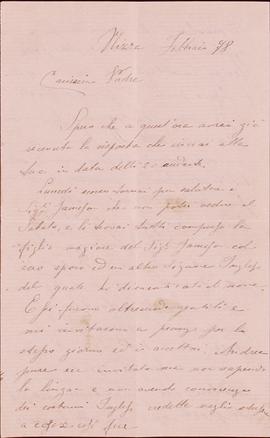 Nizza Febbraio 78
Carissimo Padre
Spero che a quest'ora avrai già
ricevuto la risposta che inviai alla
tua in data delli 20 andante.
Lunedì scorso tornai per salutare i
Sigri Jameson che non potei vedere il
Sabato, e li trovai tutti compreso la
figlia maggiore del Sigr Jameson col
suo sposo ed un altro Signore Inglese
del quale ho dimenticato il nome.
Essi furono oltremodo gentili e
mi invitarono a pranzo per lo
stesso giorno ed io accettai. Andrea
pure era invitato ma non sapendo
la lingua e non avendo conoscenza
dei costumi Inglesi credette meglio
e così fece